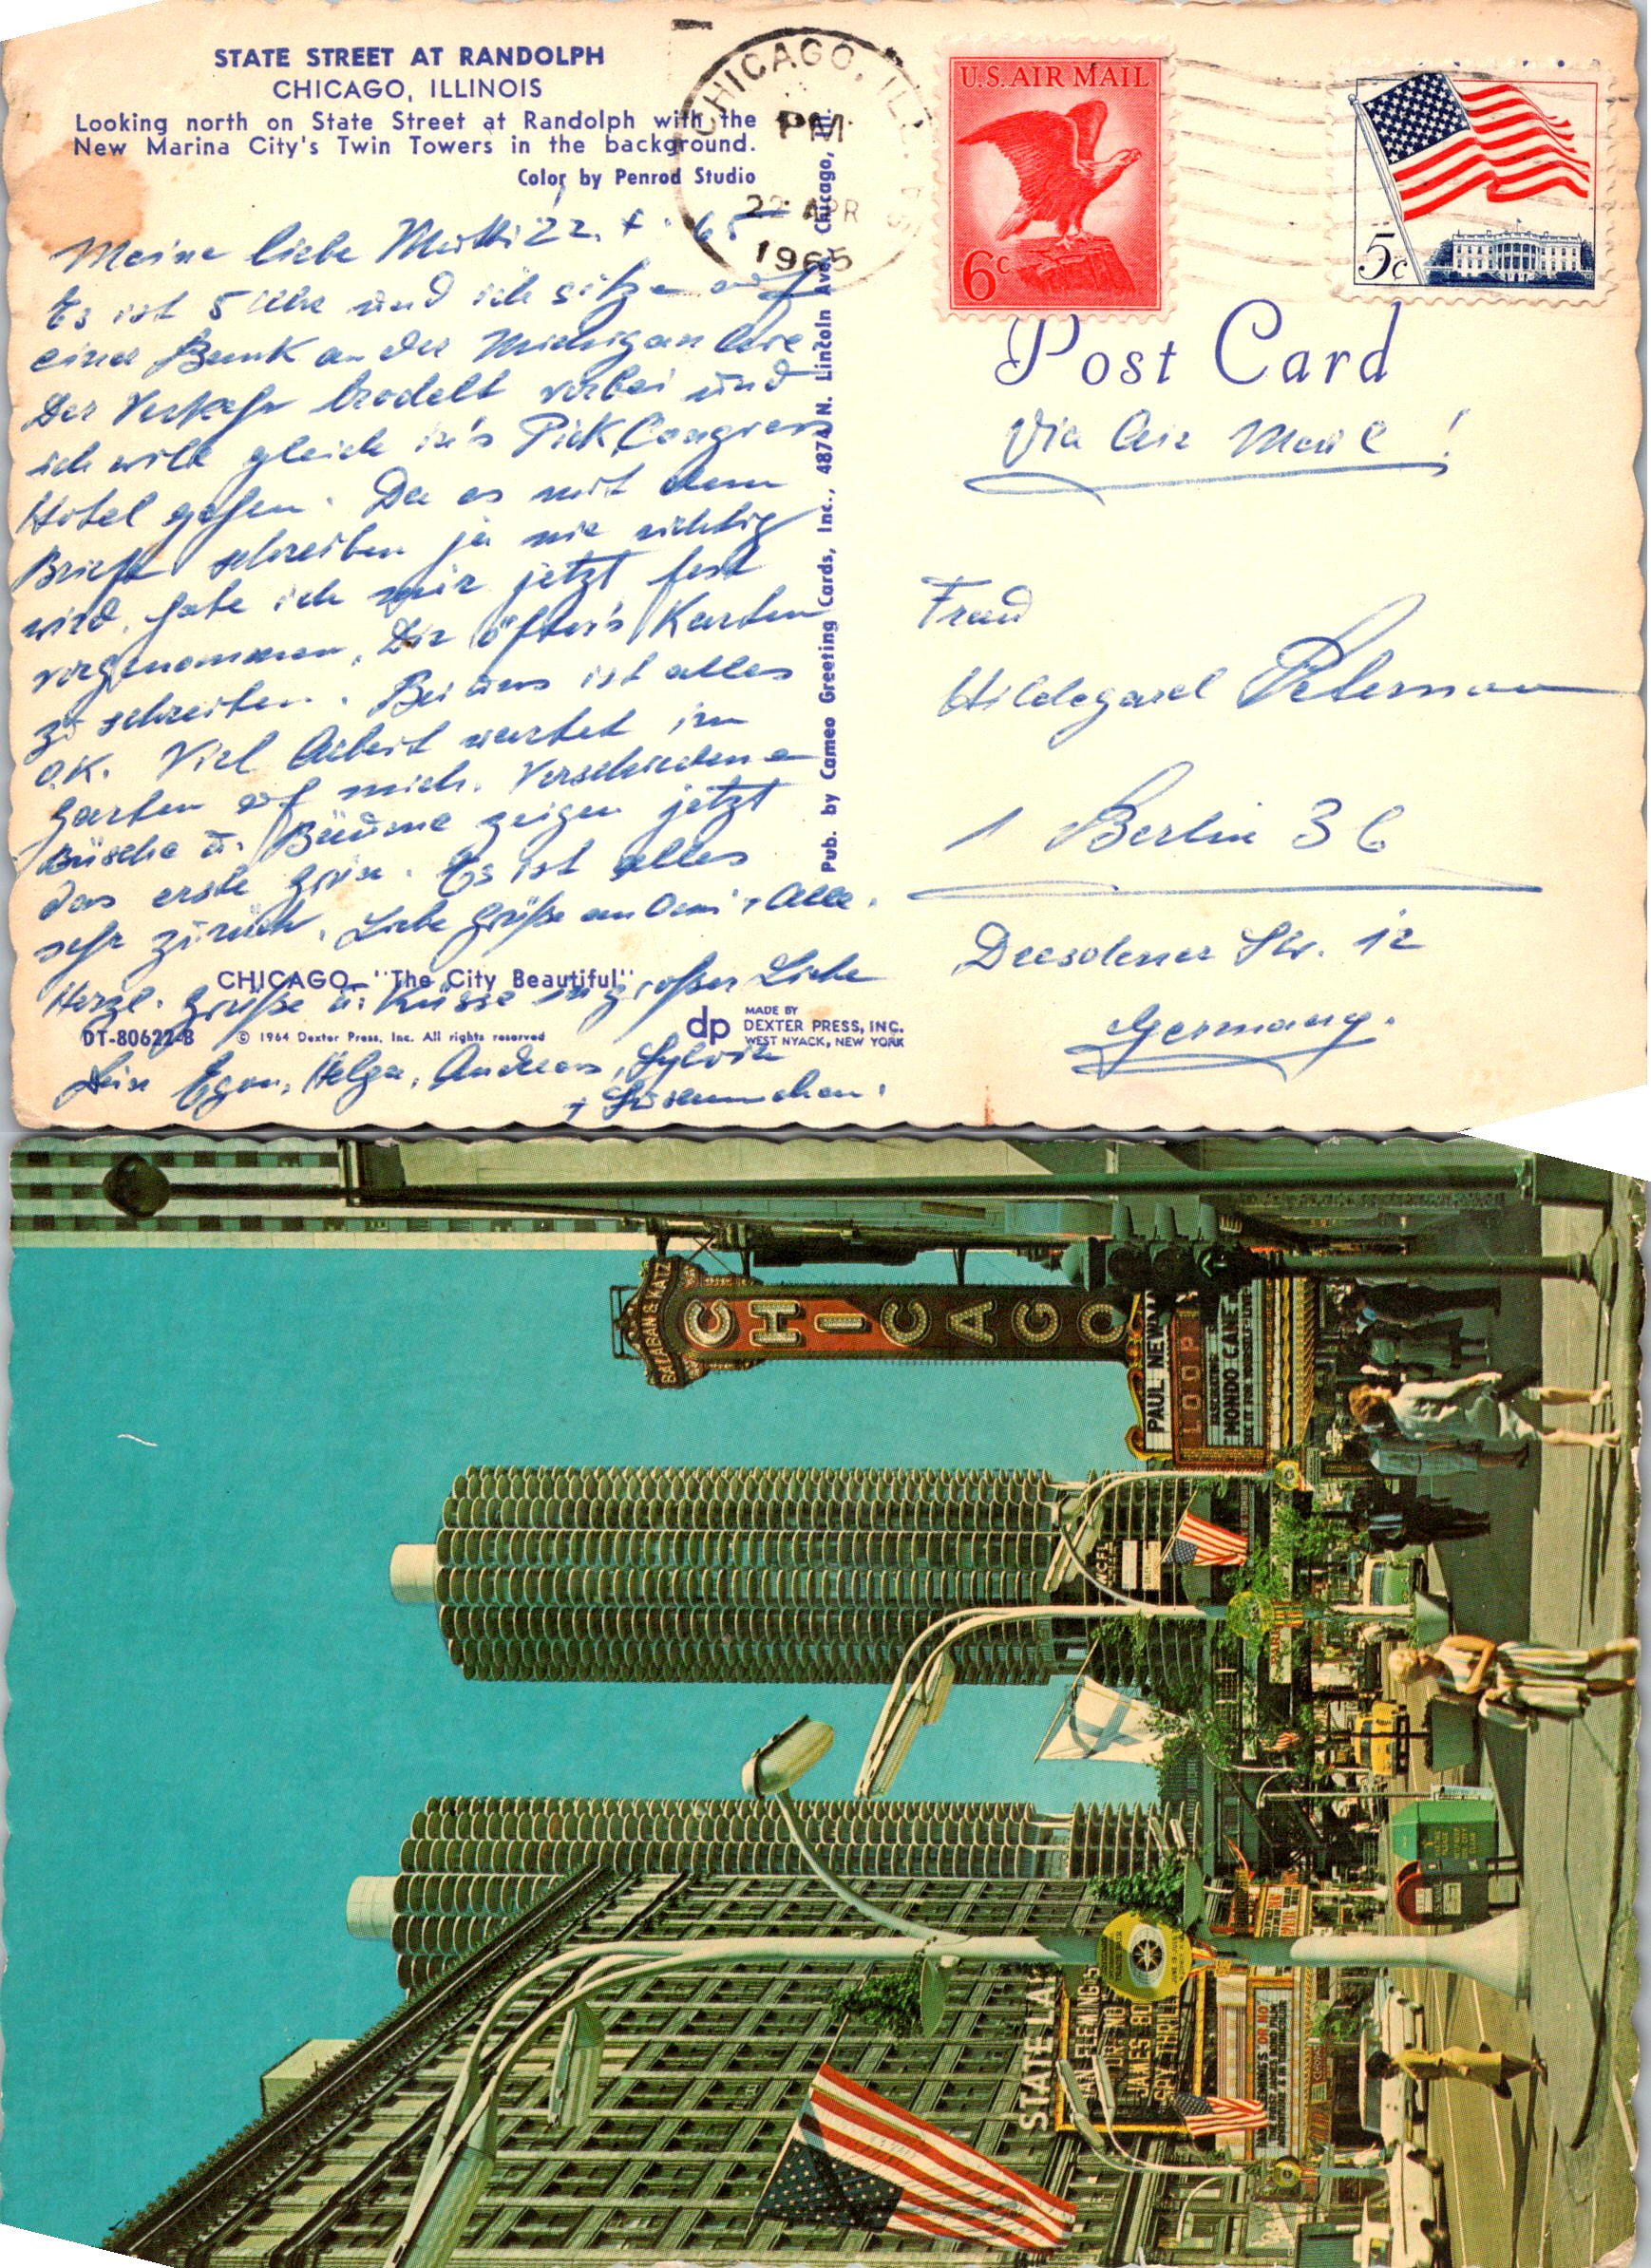 STATE STREET AT RANDOLPH
CHICAGO, ILLINOIS
Looking north on State Street at Randolph with the
New Marina City's Twin Towers in the background.
Color by Penrod Studio
CHICAGO, ILL.
PM
22 APR
1965
U.S. AIR MAIL
6c
5c
Post Card
Via Air Mail!
Meine liebe Mutti! 22. 4. 65
Es ist 5 Uhr und ich sitze auf
einer Bank an der Michigan Ave
Der Verkehr brodelt vorbei und
ich will gleich in's Pick Congress
Hotel gehen. Da es mit dem
Briefe schreiben ja nie richtig
wird, habe ich mir jetzt fest
vorgenommen, Dir öfter's Karten
zu schreiben. Bei uns ist alles
O.K. Viel Arbeit wartet im
Garten auf mich. Verschiedene
Büsche u. Bäume zeigen jetzt
das erste Grün. Es ist alles
sehr zurück. Liebe Grüße an Omi + Alle.
Herzl. Grüße u. Küsse in großer Liebe
Dein Egon, Helga, Andreas, Sylvia
+ Susannchen.
Frau
Hildegard Petermann
1 Berlin 36
Dresdener Str. 12
Germany.
Pub. by Cameo Greeting Cards, Inc., 4874 N. Lincoln Ave., Chicago, Ill.
CHICAGO—"The City Beautiful"
DT-80622-B
© 1964 Dexter Press, Inc. All rights reserved
dp
MADE BY
DEXTER PRESS, INC.
WEST NYACK, NEW YORK
BALABAN & KATZ
CHICAGO
PAUL NEWM
LOOP
MONDO CANE
STATE LA
IAN FLEMING'S
DR. NO
JAMES BO
SPY THRILL